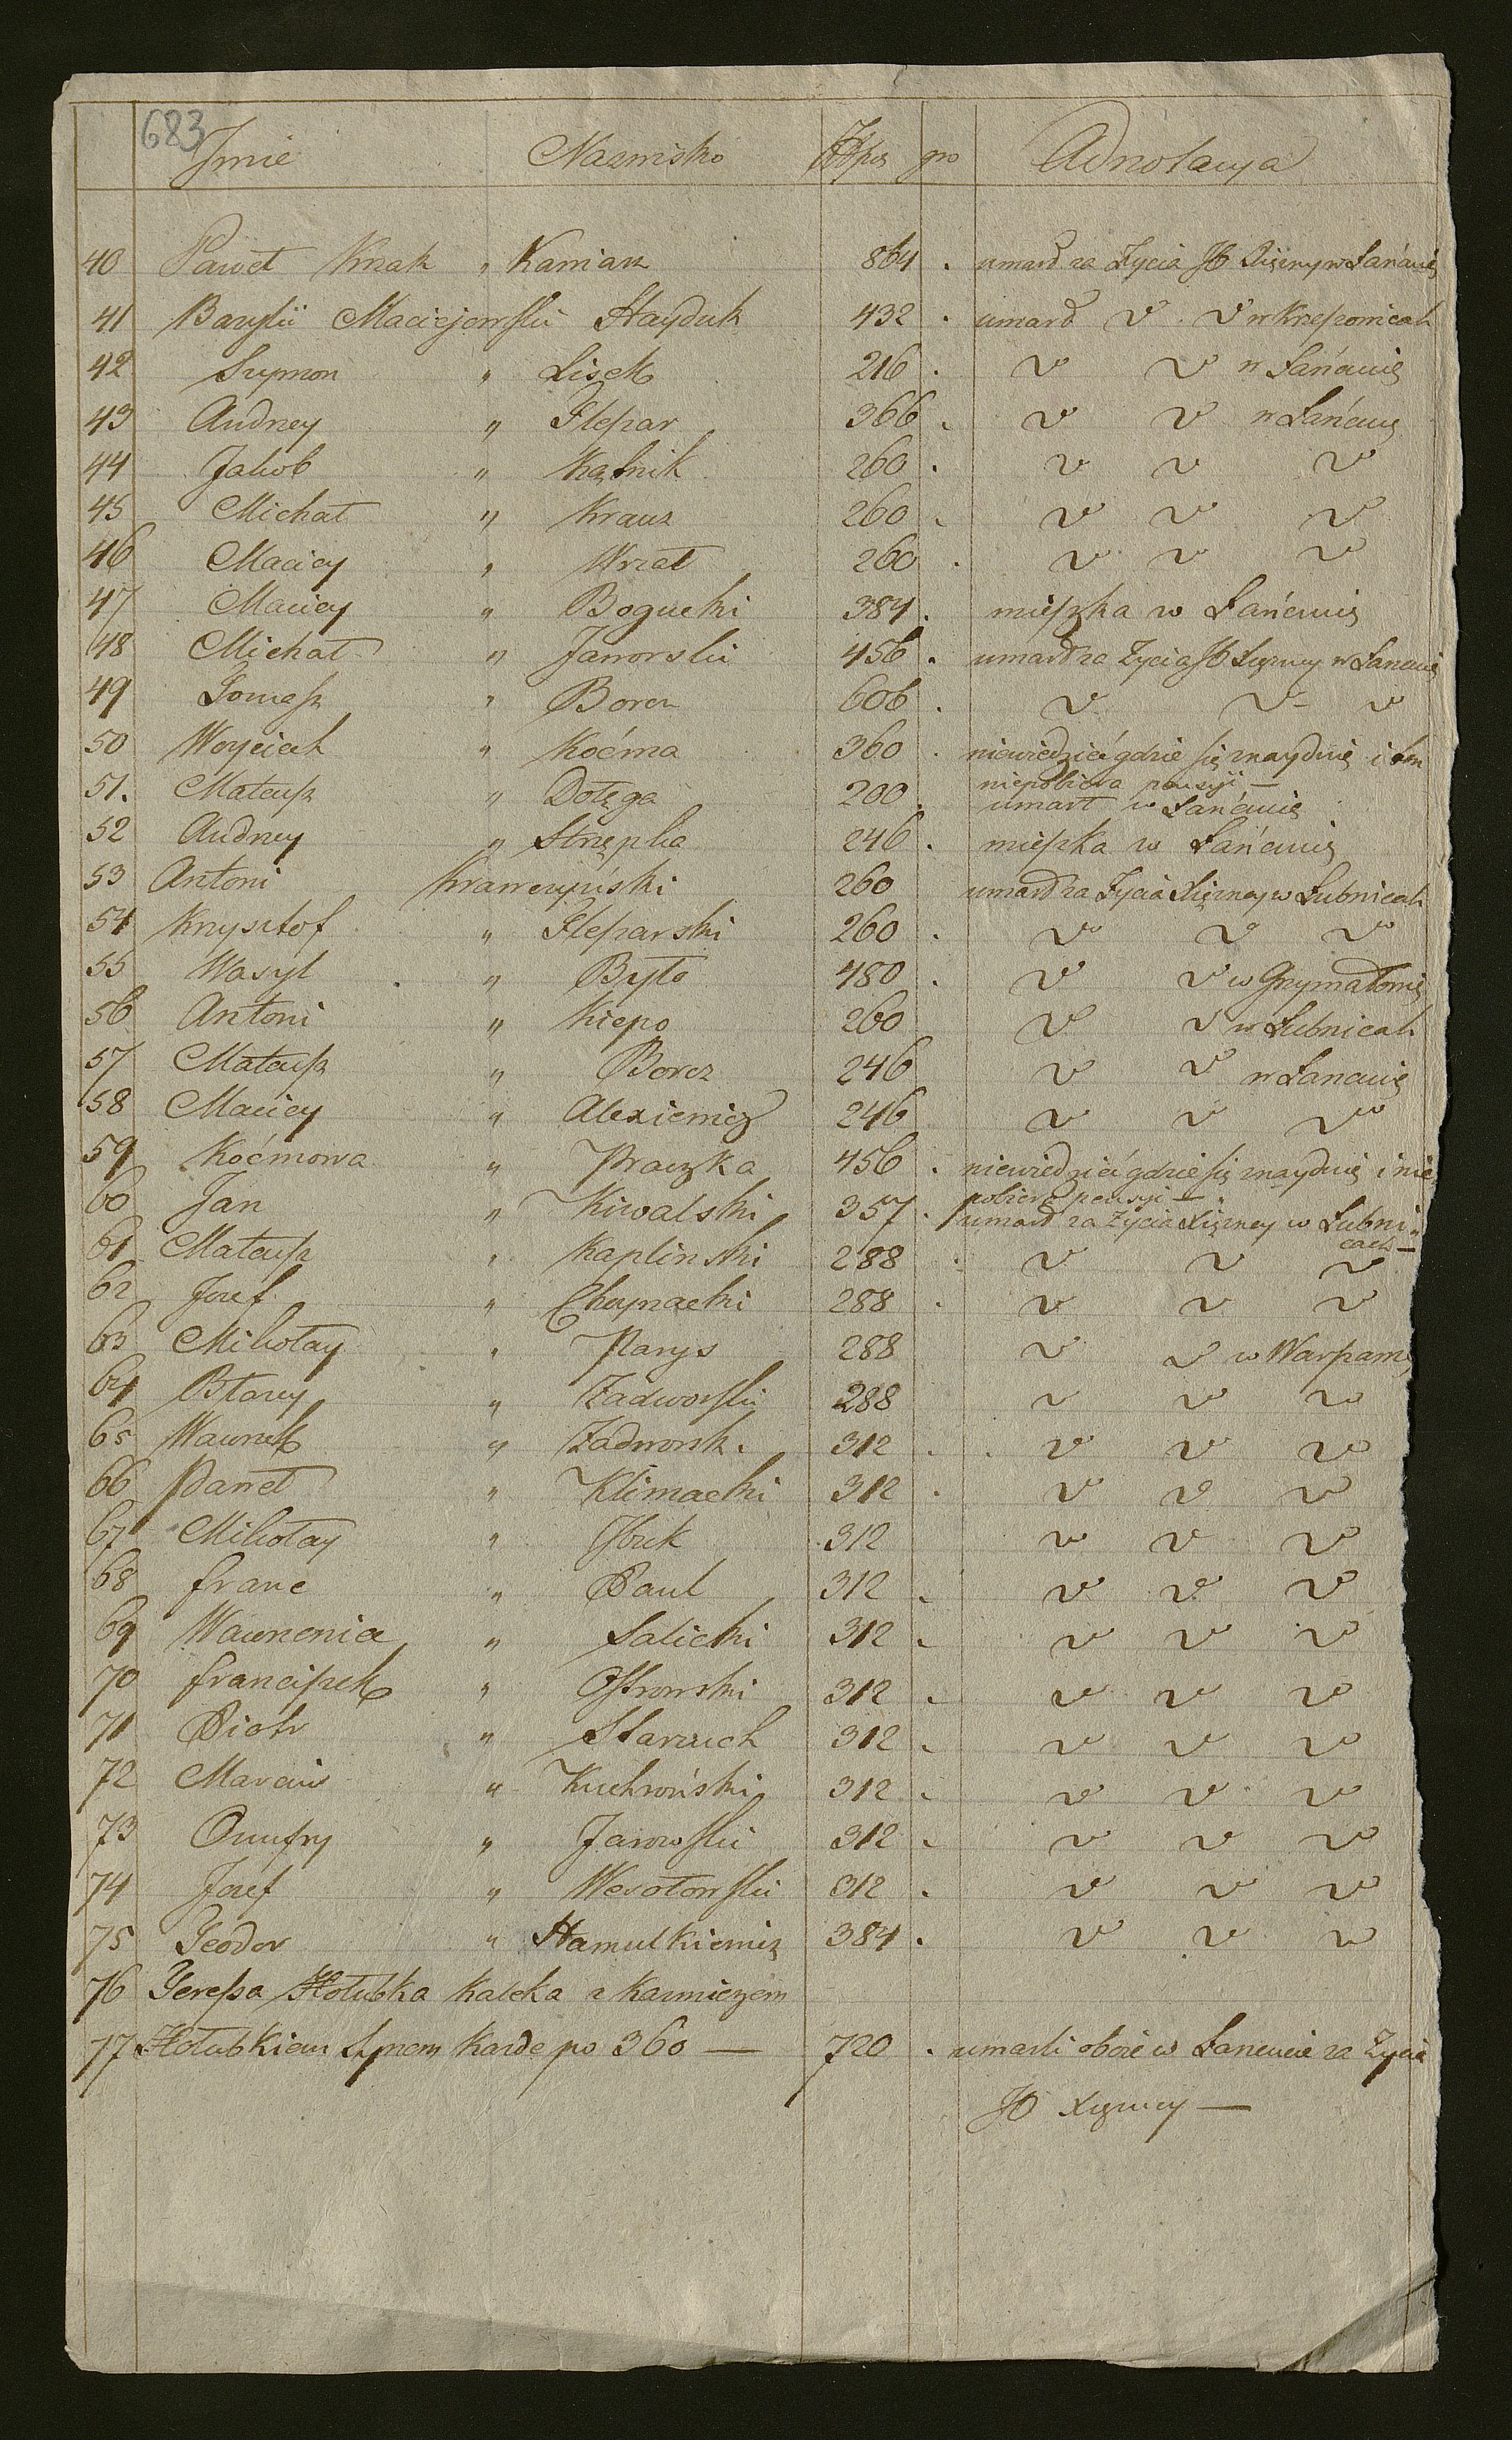 683
Jmie Nazwisko Złpol gro Adnotacya
40 Paweł Krzak " Kaniarz 864 . umarł za Życia JO Xiężny w Łańcucie
41 Bazylii Maciejowski Hayduk 432 . umarł v v w Krzeszowicach
42 Szymon " Lisek 216 . v v w Łańcucie
43 Andrzey " Ślepar 366 . v v w Łańcucie
44 Jakob " Kątnik 260 . v v v
45 Michał " Krauz 260 . v v v
46 Maciey " Wrzał 260 . v v v
47 Maciey " Bogucki 384 . mieszka w Łańcucie
48 Michał " Janorski 456 . umarł za Życia JO Xiężney w Łancucie
49 Tomasz " Borcz 606 . v v v
50 Woyciech " Koćma 360 . niewiedzieć gdzie się znayduie i ten
niepobiera pensyi —
51. Mateusz " Dołęga 200 . umarł w Łańcucie
52 Andrzey " Strzępka 246 . mieszka w Łańcucie
53 Antoni Krawczyński 260 umarł za Życia Xiężney w Łubnicach
54 Krzysztof " Śleparski 260 . v v v
55 Wasyl " Było 480 . v v w Grzymałowie
56 Antoni " Kiepo 260 v v w Łubnicach
57 Mateusz " Borcz 246 v v w Łancucie
58 Maciey " Alexiewicz 246 v v v
59 Koćmowa " Praczka 456 . niewiedzieć gdzie się znayduie i nie
pobiera pensyi —
60 Jan " Kiwalski 357 . umarł za Życia Xiężney w Łubni„
cach —
61 Mateusz " Kaplinski 288 . v v v
62 Jozef " Choynacki 288 . v v v
63 Mikołay " Parys 288 v v w Warszawie
64 Błazey " Zadworski 288 v v v
65 Wawrzek " Zadworsk. 312 . v v v
66 Paweł " Klimacki 312 . v v v
67 Mikołay " Żuk 312 v v v
68 franc " Paul 312 . v v v
69 Wawrzeniec " Salicki 312 . v v v
70 franciszek " Ostrowski 312 . v v v
71 Piotr " Starzuch 312 . v v v
72 Marcin " Kuchroński 312 . v v v
73 Onufry " Jarowski 312 . v v v
74 Jozef " Wesołowski 312 . v v v
75 Teodor " Hamulkiewicz 384 . v v v
76 Teressa Hołubka Kaleka z Kazmierzem
77 Hołubkiem Synem Kazde po 360 — 720 . umarli oboie w Łancucie za Życia
JO Xiężney —